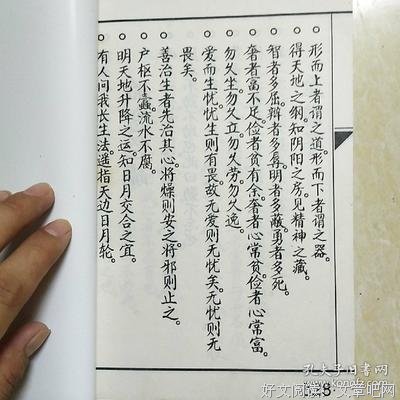 形而上者谓之道。形而下者谓之器。
得天地之纲。知阴阳之房。见精神之藏。
智者多屈。辩者多辱。明者多蔽。勇者多死。
奢者富不足。俭者贫有余。奢者心常贫。俭者心常富。
勿久坐。勿久立。勿久劳。勿久逸。
爱而生忧。忧生则有畏。故无爱则无忧矣。无忧则无
畏矣。
善治生者先治其心。将燥则安之。将邪则止之。
户枢不蠹。流水不腐。
明天地升降之运。知日月交合之宜。
有人问我长生法。遥指天边日月轮。
孔夫子旧书网
好文阅读 文章吧网